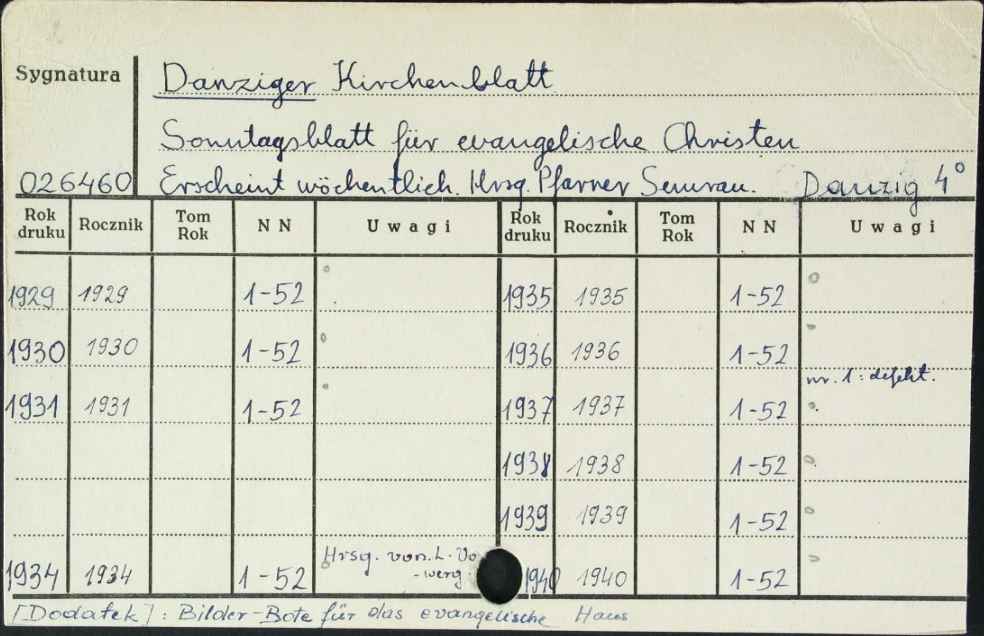 Sygnatura Danziger Kirchenblatt
Sonntagsblatt für evangelische Christen
026460 Erscheint wöchentlich. Hrsg. Pfarrer Semrau. Danzig 4°
Rok druku Rocznik Tom Rok N N Uwagi Rok druku Rocznik Tom Rok N N Uwagi
1929 1929 1-52 1935 1935 1-52
1930 1930 1-52 1936 1936 1-52
nr. 1: defekt.
1931 1931 1-52 1937 1937 1-52
1938 1938 1-52
1939 1939 1-52
Hrsg. von L. Vo
-werg
1934 1934 1-52 1940 1940 1-52
[Dodatek]: Bilder-Bote für das evangelische Haus